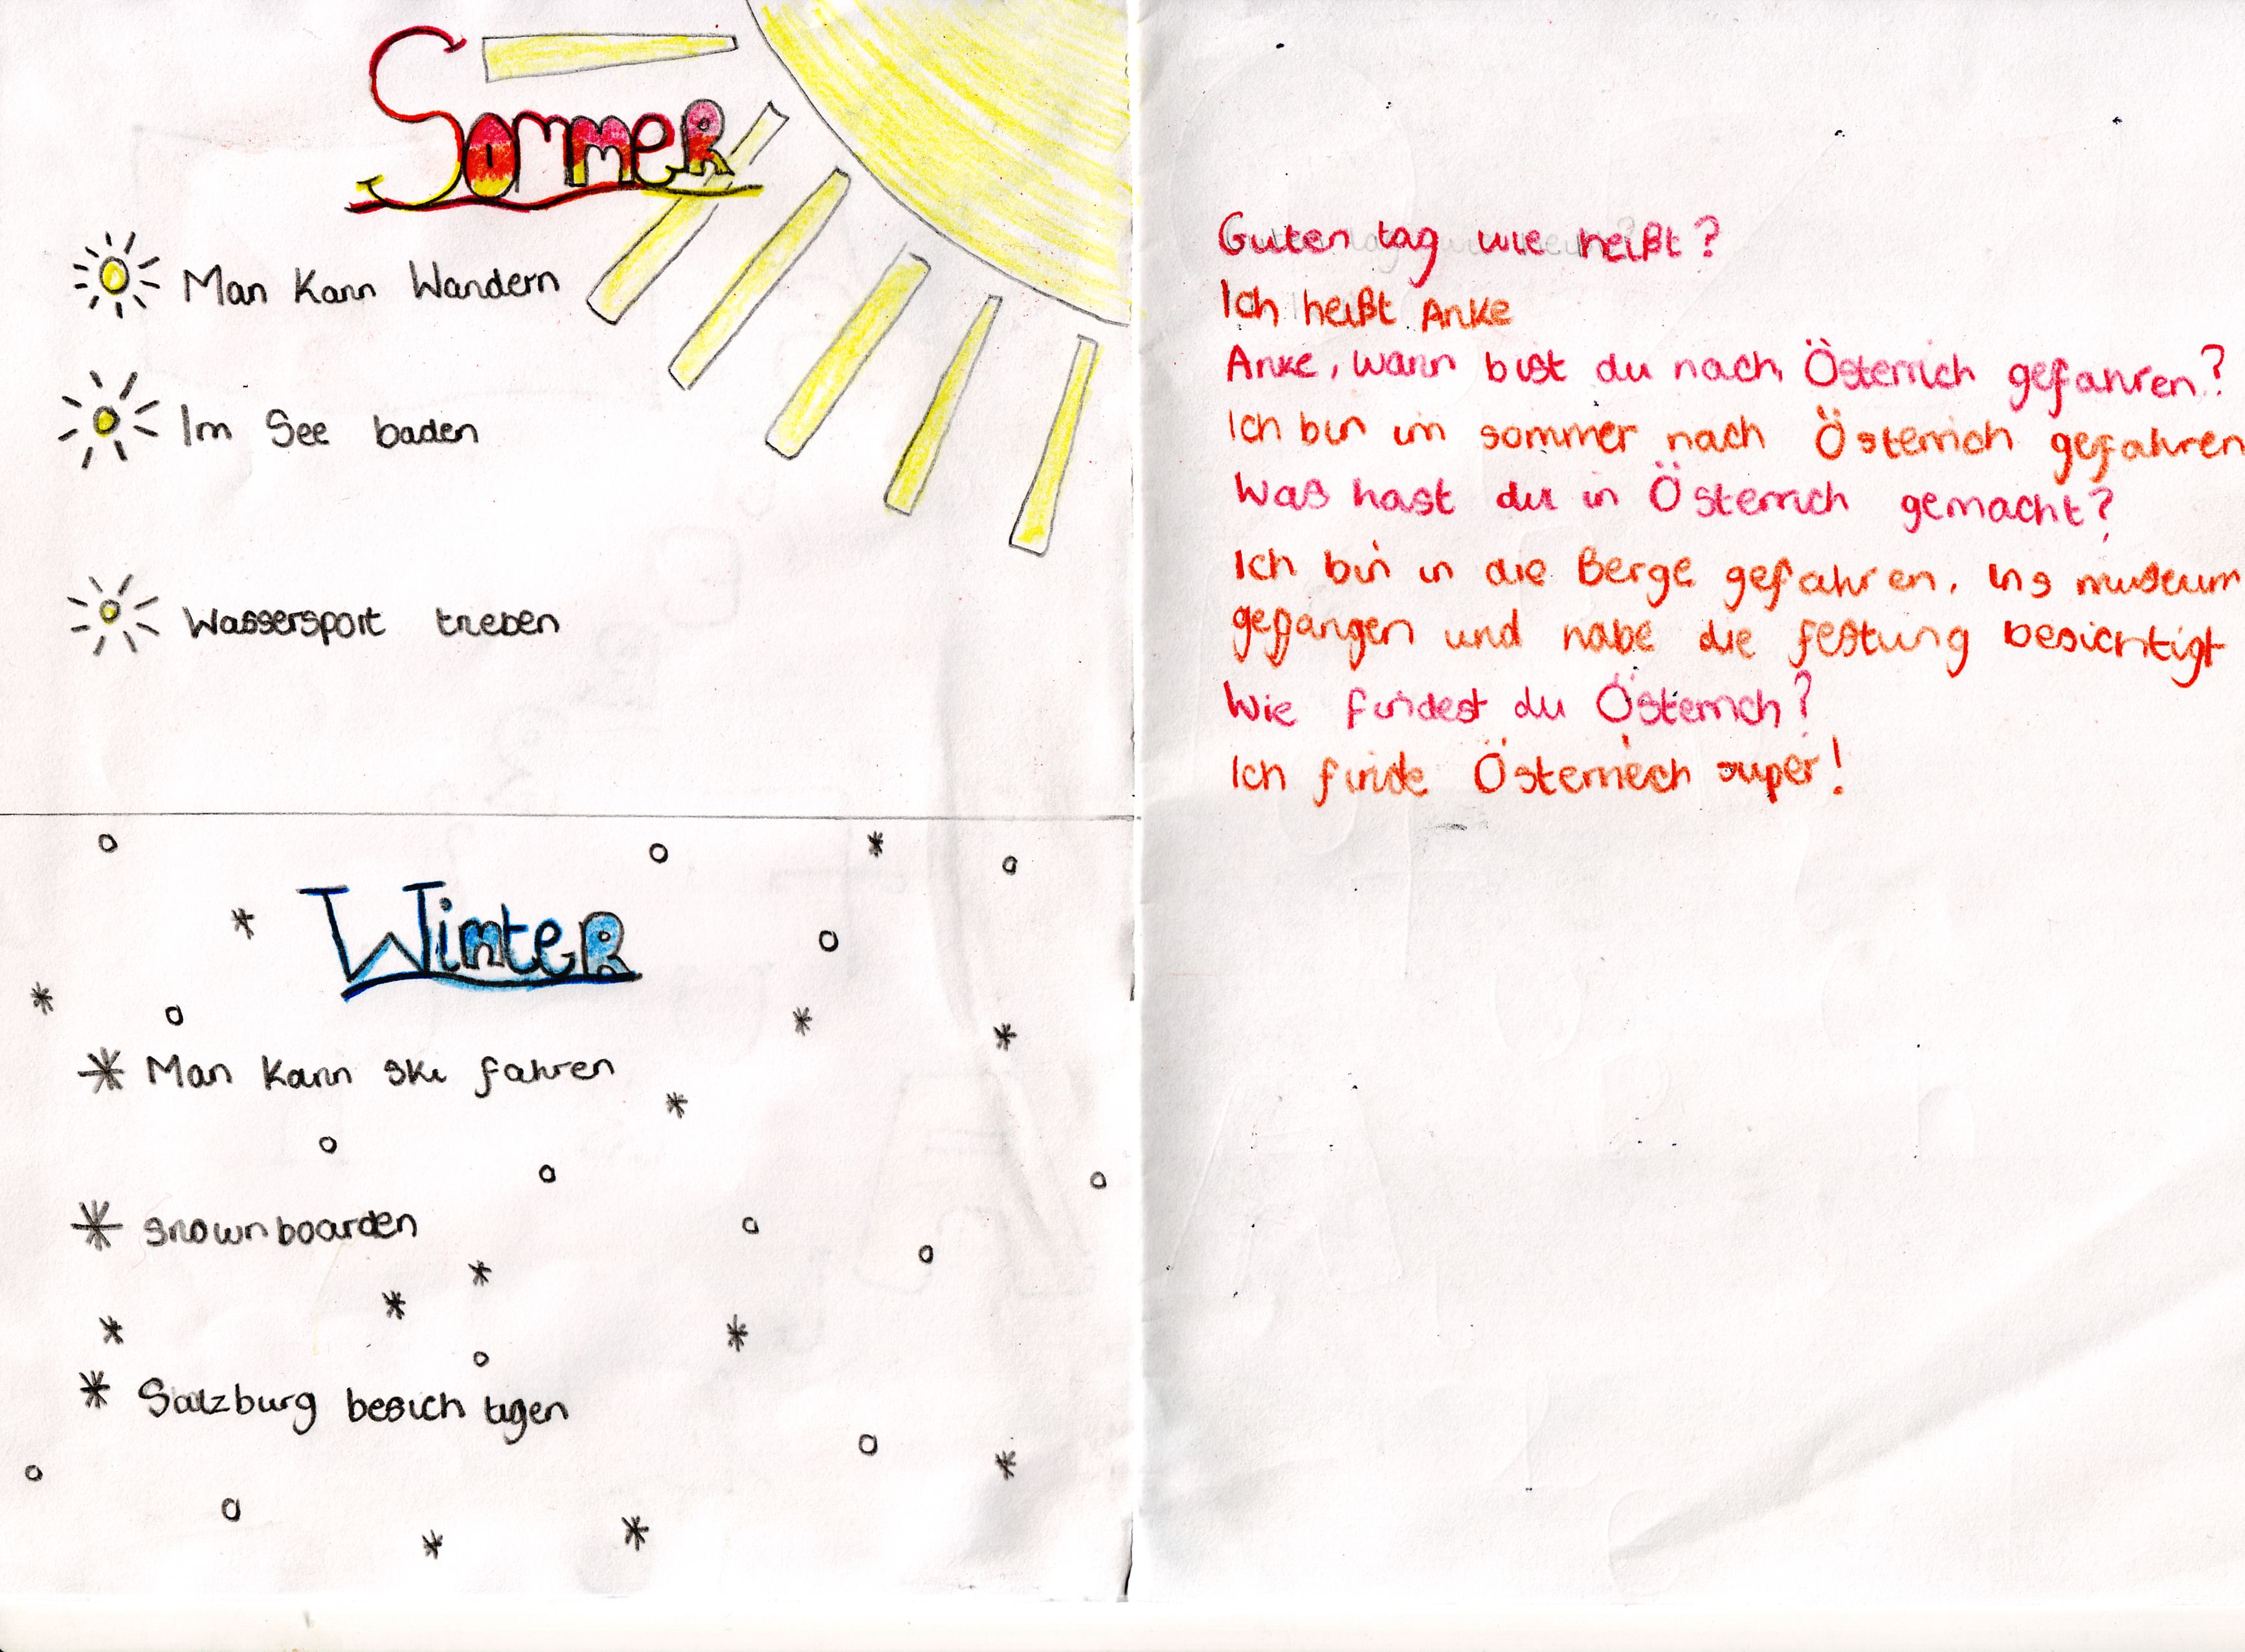 Sommer
Man Kann Wandern
Im See baden
Wassersport trieben
Winter
Man Kann ski fahren
snownboarden
Salzburg besich tigen
Guten tag wie heißt?
Ich heißt Anke
Anke, wann bist du nach Österrich gefahren?
Ich bin im sommer nach Österrich gefahren
Waß hast du in Österrich gemacht?
Ich bin in die Berge gefahren, ins museum
gefangen und habe die festung besichtigt
Wie findest du Österrich?
Ich finde Österriech super!